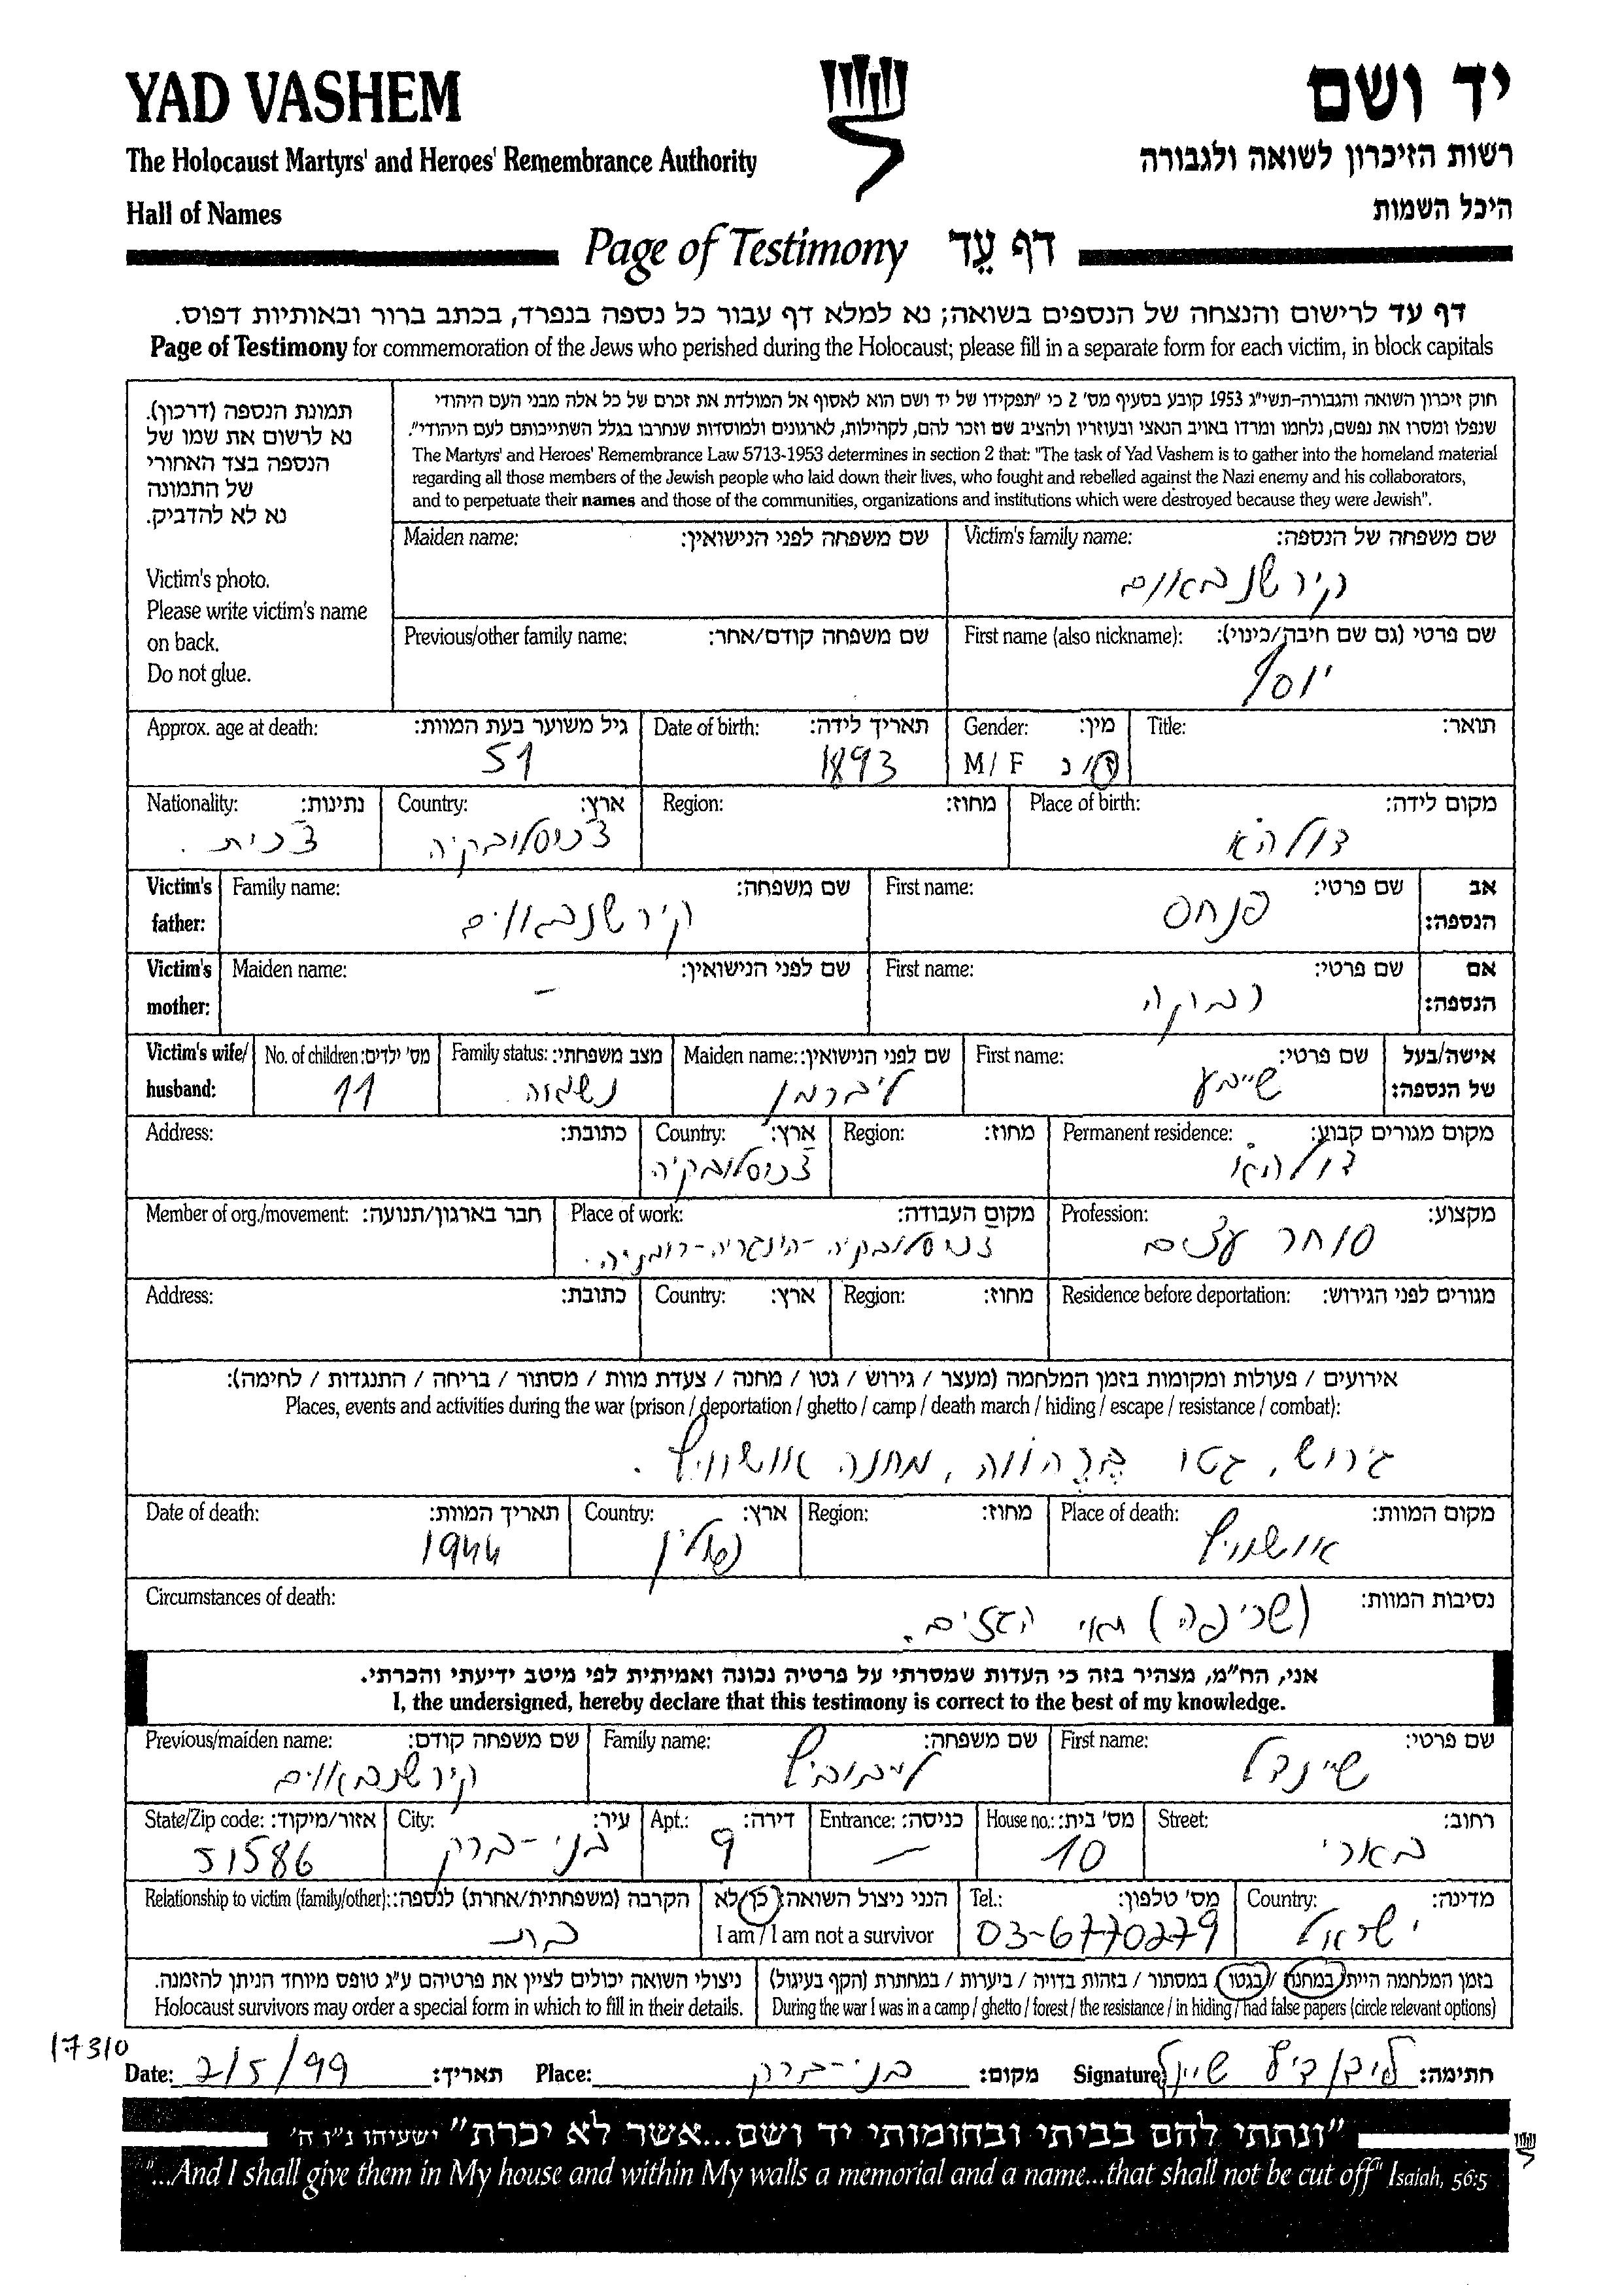 YAD VASHEM
יד ושם
The Holocaust Martyrs' and Heroes' Remembrance Authority
רשות הזיכרון לשואה ולגבורה
Hall of Names
היכל השמות
Page of Testimony דף עֵד
דף עד לרישום והנצחה של הנספים בשואה; נא למלא דף עבור כל נספה בנפרד, בכתב ברור ובאותיות דפוס.
Page of Testimony for commemoration of the Jews who perished during the Holocaust; please fill in a separate form for each victim, in block capitals
תמונת הנספה (דרכון).
נא לרשום את שמו של
הנספה בצד האחורי
של התמונה
נא לא להדביק.
Victim's photo.
Please write victim's name
on back.
Do not glue.
חוק זיכרון השואה והגבורה-תשי"ג 1953 קובע בסעיף מס' 2 כי "תפקידו של יד ושם הוא לאסוף אל המולדת את זכרם של כל אלה מבני העם היהודי
שנפלו ומסרו את נפשם, נלחמו ומרדו באויב הנאצי ובעוזריו ולהציב שם וזכר להם, לקהילות, לארגונים ולמוסדות שנחרבו בגלל השתייכותם לעם היהודי".
The Martyrs' and Heroes' Remembrance Law 5713-1953 determines in section 2 that: "The task of Yad Vashem is to gather into the homeland material
regarding all those members of the Jewish people who laid down their lives, who fought and rebelled against the Nazi enemy and his collaborators,
and to perpetuate their names and those of the communities, organizations and institutions which were destroyed because they were Jewish".
Victim's family name: שם משפחה של הנספה:
קירשנבאום
Maiden name: שם משפחה לפני הנישואין:
First name (also nickname): שם פרטי (גם שם חיבה/כינוי):
יוסף
Previous/other family name: שם משפחה קודם/אחר:
Title: תואר:
Gender: מין:
M / F ז/נ
Date of birth: תאריך לידה:
1893
Approx. age at death: גיל משוער בעת המוות:
51
Place of birth: מקום לידה:
דולהא
Region: מחוז:
Country: ארץ:
צ'כוסלובקיה
Nationality: נתינות:
צ'כית .
Victim's father: אב הנספה:
First name: שם פרטי:
פנחס
Family name: שם משפחה:
קירשנבוים
Victim's mother: אם הנספה:
First name: שם פרטי:
רבוקה
Maiden name: שם לפני הנישואין:
–
Victim's wife/ husband: אישה/בעל של הנספה:
First name: שם פרטי:
שייבע
Maiden name: שם לפני הנישואין:
ליברמן
Family status: מצב משפחתי:
נשואה .
No. of children: מס' ילדים:
11
Permanent residence: מקום מגורים קבוע:
דולהא
Region: מחוז:
Country: ארץ:
צ'כוסלובקיה
Address: כתובת:
Profession: מקצוע:
סוחר עצים
Place of work: מקום העבודה:
צ'כוסלובקיה-הינגריה-רומניה.
Member of org./movement: חבר בארגון/תנועה:
Residence before deportation: מגורים לפני הגירוש:
Region: מחוז:
Country: ארץ:
Address: כתובת:
אירועים / פעולות ומקומות בזמן המלחמה (מעצר / גירוש / גטו / מחנה / צעדת מוות / מסתור / בריחה / התנגדות / לחימה):
Places, events and activities during the war (prison / deportation / ghetto / camp / death march / hiding / escape / resistance / combat):
גירוש, גטו בֶרֶהוֹוה, מחנה אושוויץ.
Place of death: מקום המוות:
אושוויץ
Region: מחוז:
Country: ארץ:
פולין
Date of death: תאריך המוות:
1944
Circumstances of death: נסיבות המוות:
(שריפה) תאי הגזים.
אני, הח"מ, מצהיר בזה כי העדות שמסרתי על פרטיה נכונה ואמיתית לפי מיטב ידיעתי והכרתי.
I, the undersigned, hereby declare that this testimony is correct to the best of my knowledge.
First name: שם פרטי:
שיינדל
Family name: שם משפחה:
לייבוביץ
Previous/maiden name: שם משפחה קודם:
קירשנבאוים
Street: רחוב:
בארי
House no.: מס' בית:
10
Entrance: כניסה:
–
Apt.: דירה:
9
City: עיר:
בני-ברק
State/Zip code: אזור/מיקוד:
51586
Country: מדינה:
ישראל
Tel.: מס' טלפון:
03-6770279
הנני ניצול השואה: כן/לא
I am / I am not a survivor
Relationship to victim (family/other): הקרבה (משפחתית/אחרת) לנספה:
בת
בזמן המלחמה הייתי במחנה / בגטו / במסתור / בזהות בדויה / ביערות / במחתרת (הקף בעיגול)
During the war I was in a camp / ghetto / forest / the resistance / in hiding / had false papers (circle relevant options)
ניצולי השואה יכולים לציין את פרטיהם ע"ג טופס מיוחד הניתן להזמנה.
Holocaust survivors may order a special form in which to fill in their details.
17310
Date: 2/5/99 תאריך: Place: בני-ברק מקום: Signature: חתימה:
"ונתתי להם בביתי ובחומותי יד ושם...אשר לא יכרת" ישעיהו נ"ו ה'
"...And I shall give them in My house and within My walls a memorial and a name...that shall not be cut off" Isaiah, 56:5